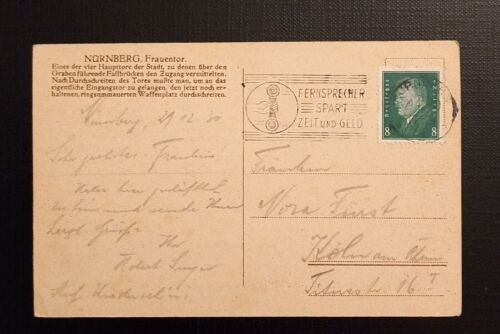 NÜRNBERG, Frauentor.
Eines der vier Haupttore der Stadt, zu denen über den
Graben führende Fallbrücken den Zugang vermittelten.
Nach Durchschreiten des Tores mußte man, um an das
eigentliche Eingangstor zu gelangen, den jetzt noch er-
haltenen, ringsummauerten Waffenplatz durchschreiten.
FERNSPRECHER
SPART
ZEIT UND GELD
Deutsches Reich
8 8
Nürnberg, 29.12.30
Sehr geehrtes Fräulein
Habe hier
sende Ihnen
herzl. Grüße
Ihr
Robert
Auf Wiedersehn!
Fräulein
Nora Fürst
Köln am Rhein
Titusstr. 16 I